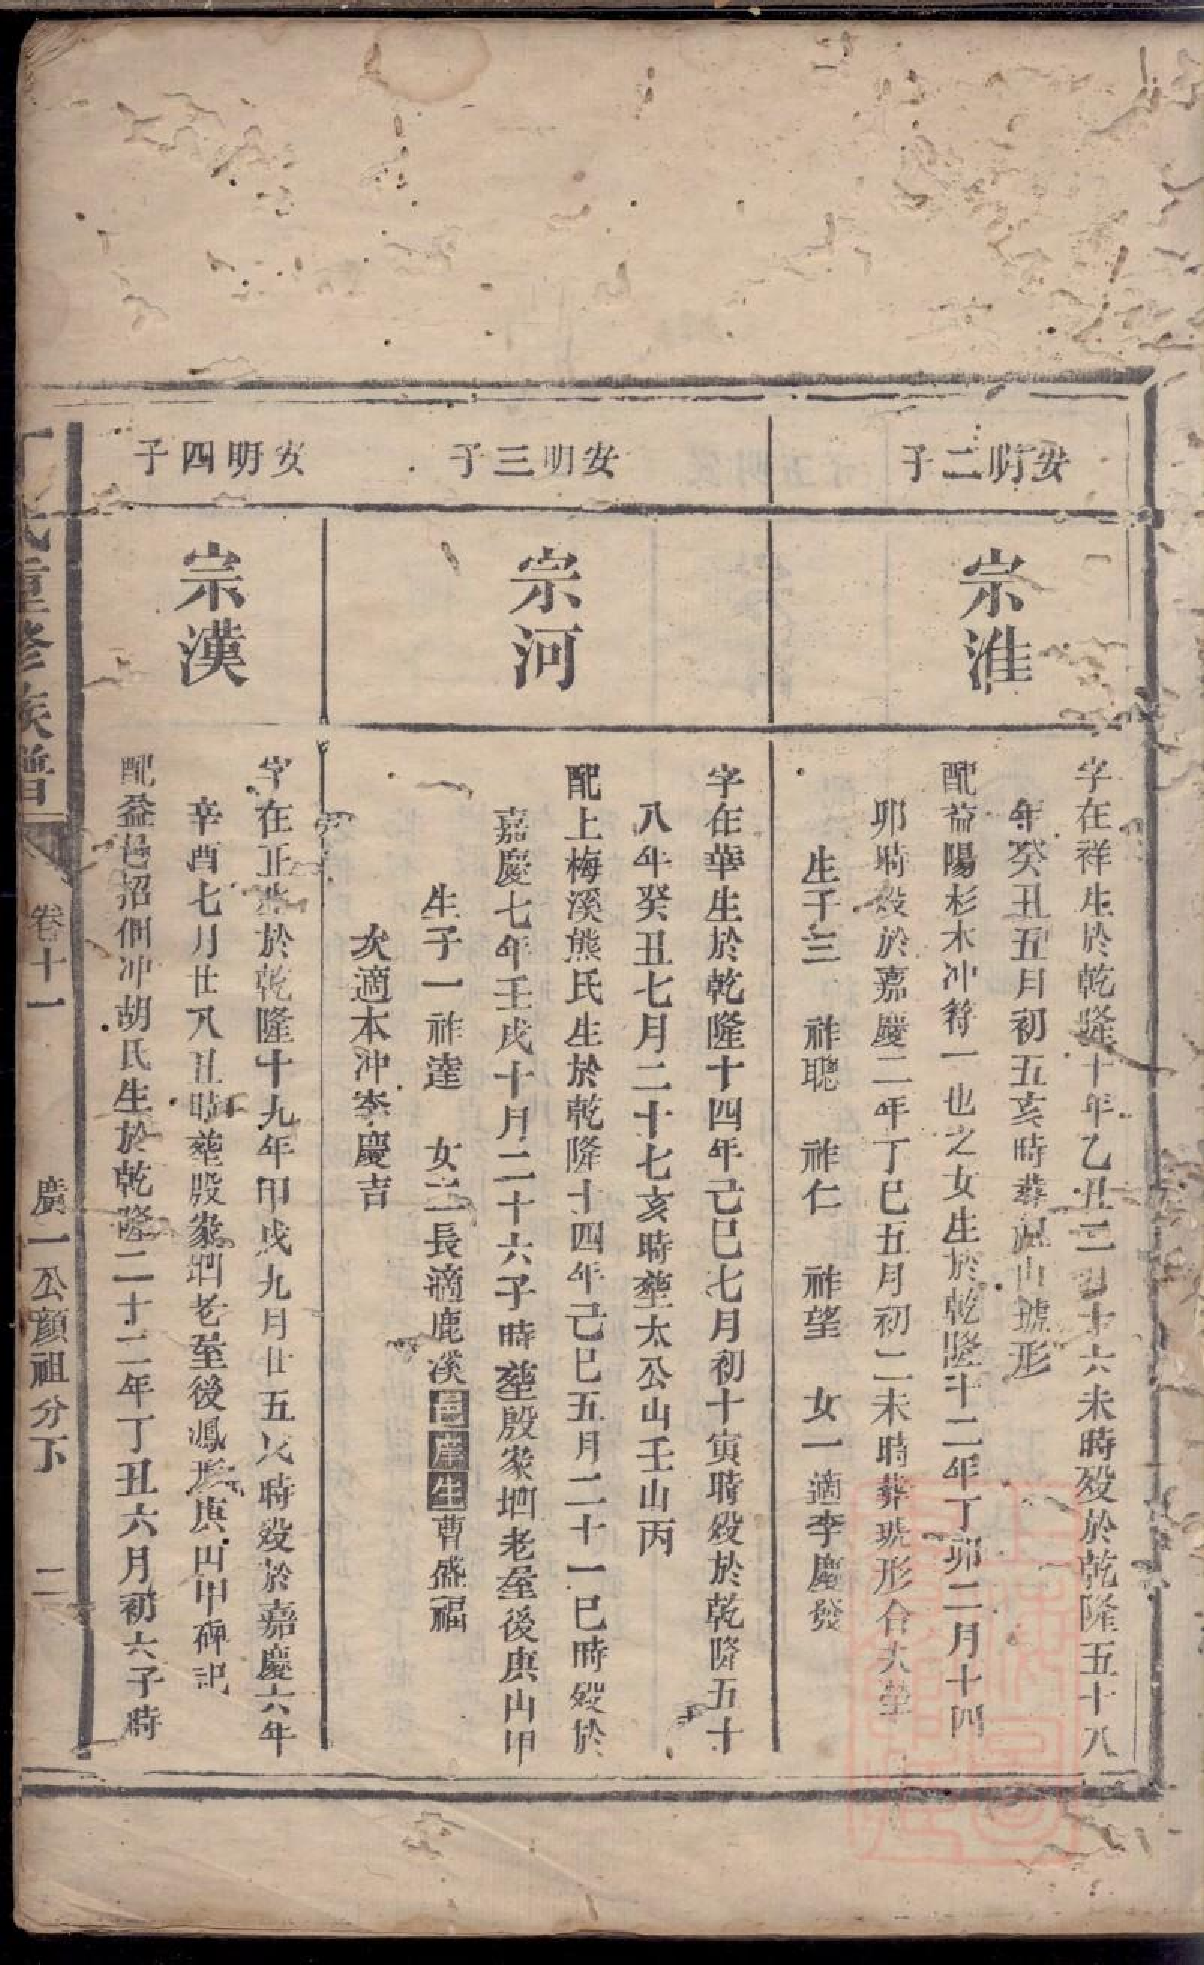 安明二子
宗淮
字在祥生於乾隆十年乙丑二月十六未時殁於乾隆五十八
年癸丑五月初五亥時葬山琥形
配益陽杉木冲符一也之女生於乾隆十二年丁卯二月十四
卯時殁於嘉慶二年丁巳五月初二未時葬琥形合大塋
生子三 祚聰 祚仁 祚望 女一適李慶發
安明三子
宗河
字在華生於乾隆十四年己巳七月初十寅時殁於乾隆五十
八年癸丑七月二十七亥時塟太公山壬山丙
配上梅溪熊氏生於乾隆十四年己巳五月二十一巳時殁於
嘉慶七年壬戌十月二十六子時塟殷家坰老屋後庚山甲
生子一祚達 女二長適鹿溪邑庠生曹盛福
次適本冲李慶吉
安明四子
宗漢
字在正生於乾隆十九年甲戌九月廿五辰時殁於嘉慶六年
辛酉七月廿八丑時塟殷家坰老屋後鳳形庚山甲碑記
配益邑招個冲胡氏生於乾隆二十二年丁丑六月初六子時
氏重修族譜
卷十一
廣一公顏祖分下
二